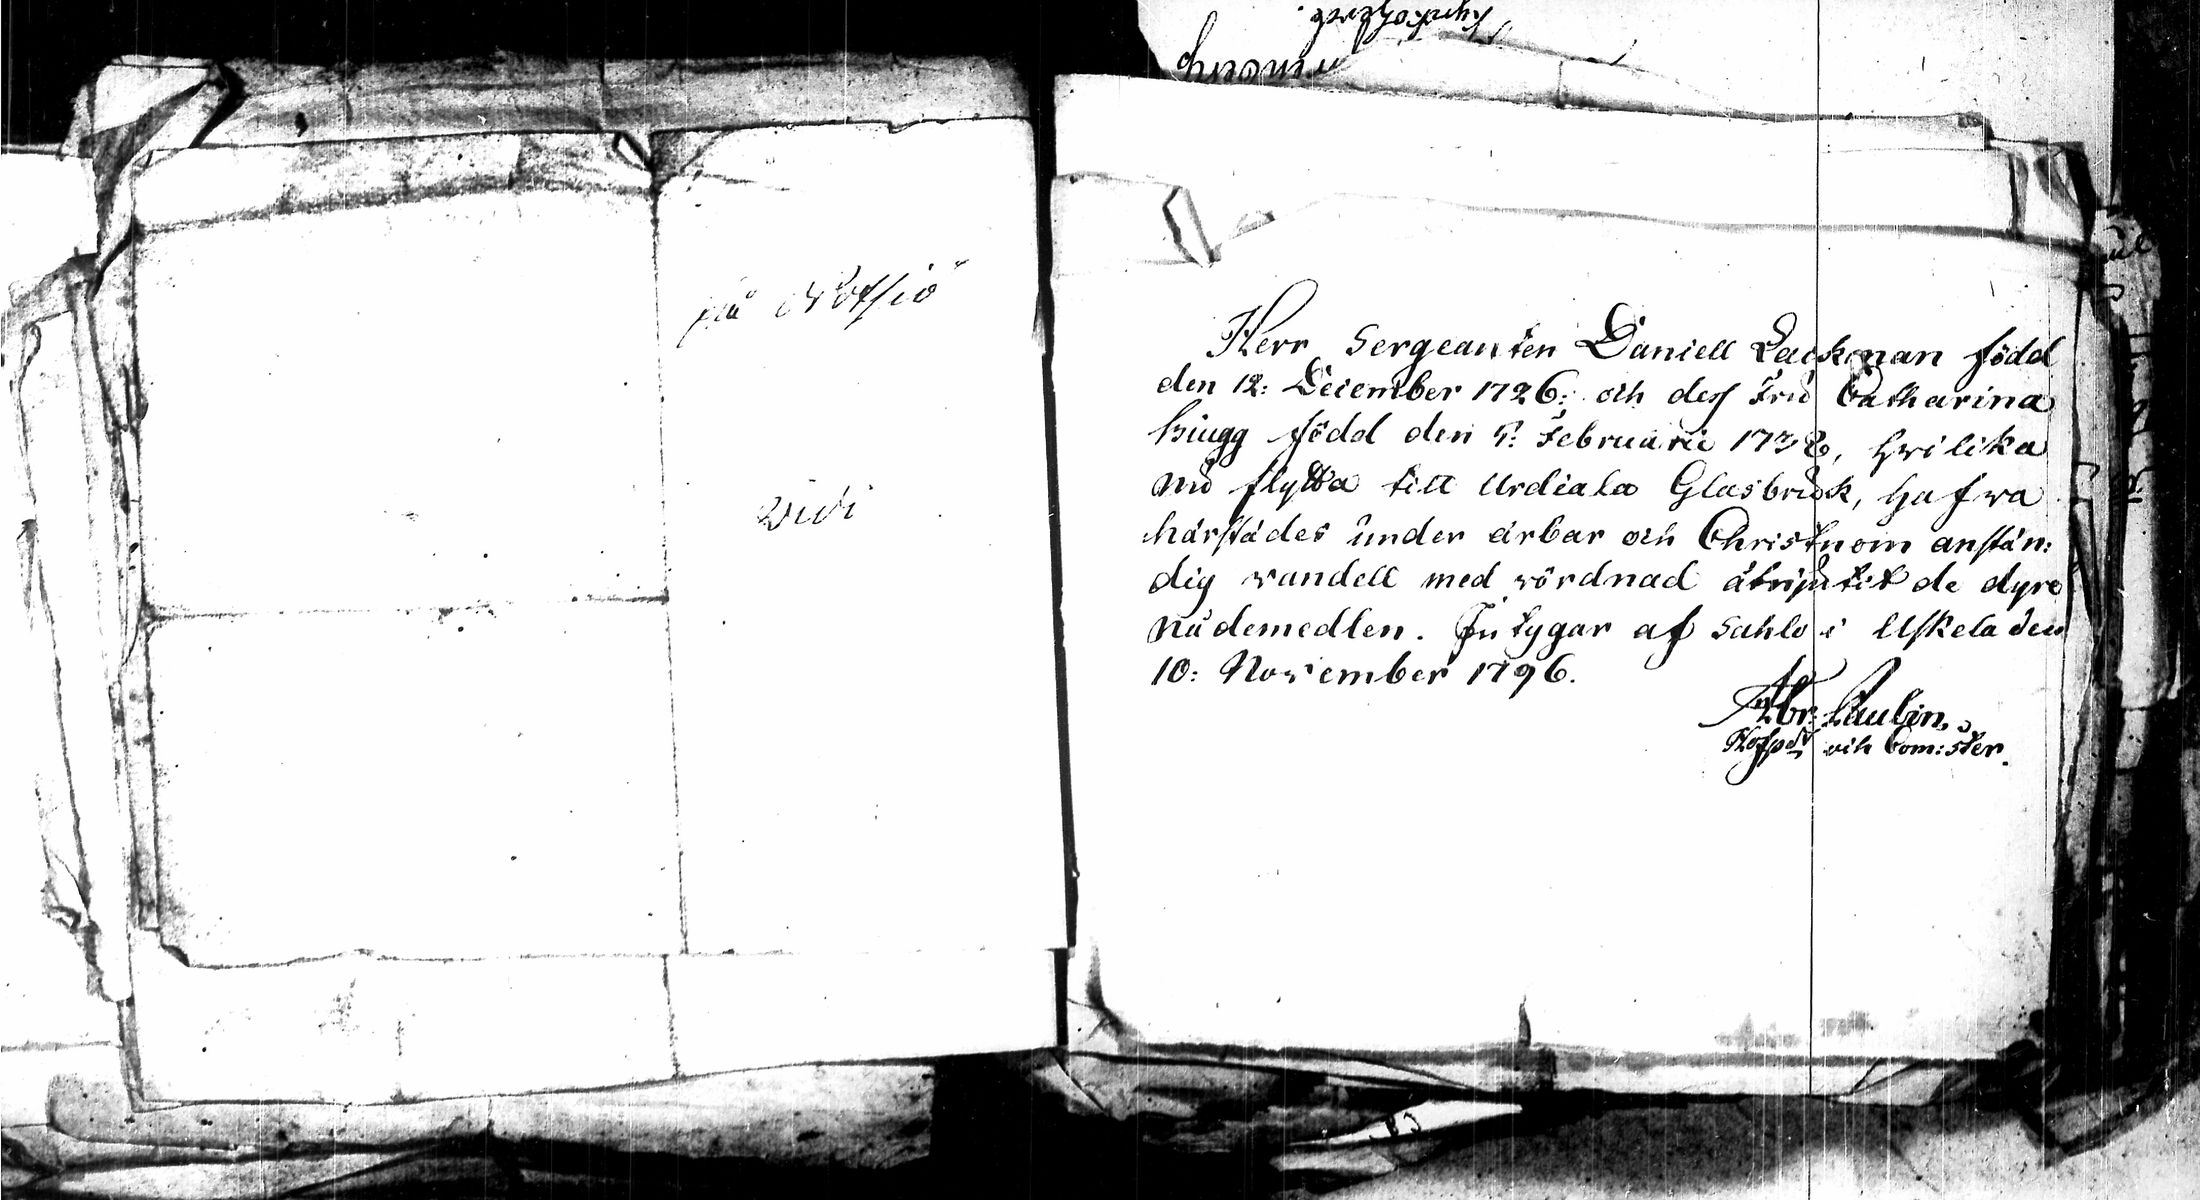 på Notsiö
Vidi
Herr Sergeanten Daniell Lackman född
den 12: December 1726: och dess Fru Catharina
född den 5: Februarii 1738, hvilika
nu flytta till Urdiala Glasbruk, hafva
härstädes under ärbar och Christnom anstän:
dig vandell med vördnad de dyre
nådemedlen. Intygar af Sahlo i Uskela den
10: November 1796.
Abr: Laubin,
och Com:ster.